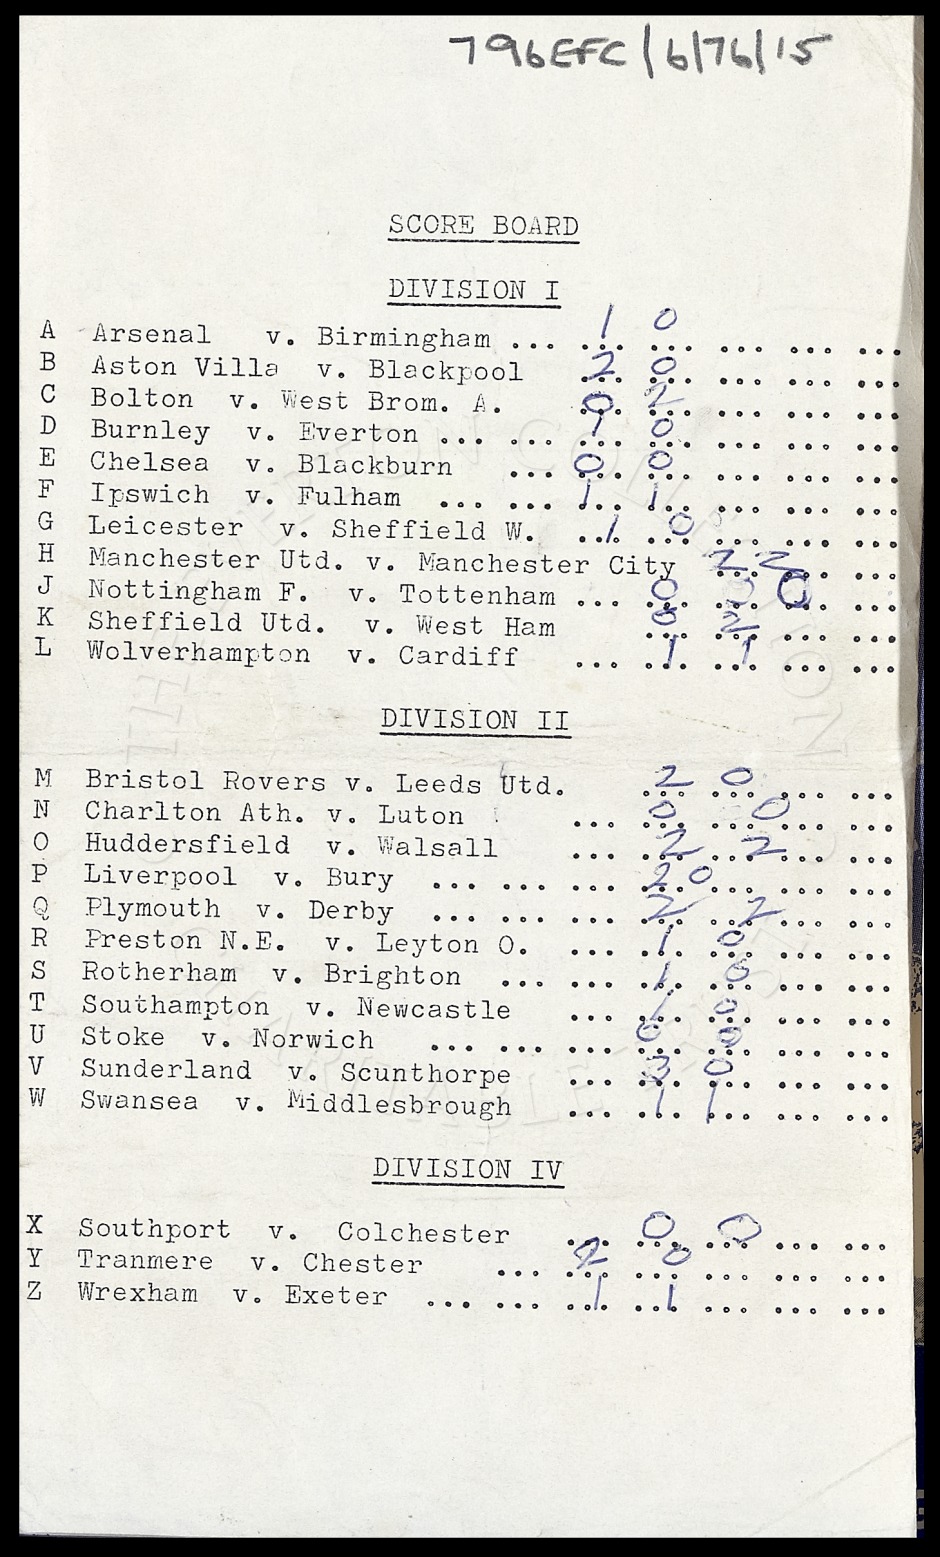 796EFC/6/76/15
SCORE BOARD
DIVISION I
A Arsenal v. Birmingham ... 1 0 ... ... ...
B Aston Villa v. Blackpool 2 0 ... ... ...
C Bolton v. West Brom. A. 0 2 ... ... ...
D Burnley v. Everton ... ... 1 0 ... ... ...
E Chelsea v. Blackburn ... 0 0 ... ... ...
F Ipswich v. Fulham ... ... 1 1 ... ... ...
G Leicester v. Sheffield W. 1 0 ... ... ...
H Manchester Utd. v. Manchester City 2 2 ... ...
J Nottingham F. v. Tottenham ... 0 0 0 ...
K Sheffield Utd. v. West Ham 0 2 ... ...
L Wolverhampton v. Cardiff ... 1 1 ... ...
DIVISION II
M Bristol Rovers v. Leeds Utd. 2 0 ... ...
N Charlton Ath. v. Luton ... 0 0 ... ...
O Huddersfield v. Walsall ... 2 2 ... ...
P Liverpool v. Bury ... ... ... 2 0 ... ... ...
Q Plymouth v. Derby ... ... ... 2 2 ... ...
R Preston N.E. v. Leyton O. ... 1 0 ... ...
S Rotherham v. Brighton ... ... 1 0 ... ...
T Southampton v. Newcastle ... 1 0 ... ...
U Stoke v. Norwich ... ... ... 0 0 ... ...
V Sunderland v. Scunthorpe ... 3 0 ... ...
W Swansea v. Middlesbrough ... 1 1 ... ...
DIVISION IV
X Southport v. Colchester ... 0 0 ... ...
Y Tranmere v. Chester ... 2 0 ... ... ...
Z Wrexham v. Exeter ... ... 1 1 ... ... ...